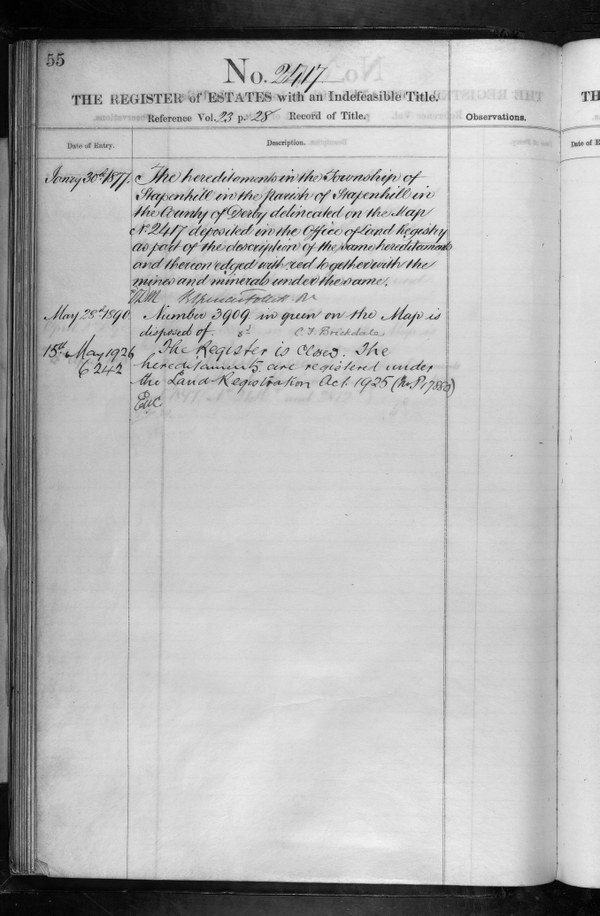 55
No. 2417
THE REGISTER of ESTATES with an Indefeasible Title.
Reference Vol. 23 p. 28 Record of Title.
Observations.
Date of Entry.
Description.
Janry 30th 1877.
The hereditaments in the Township of
Stapenhill in the Parish of Stapenhill in
the County of Derby delineated on the Map
No. 2417 deposited in the Office of Land Registry
as part of the description of the same hereditaments
and thereon edged with red together with the
mines and minerals under the same.
May 28th 1890
Number 3909 in green on the Map is
disposed of.
C. F. Brickdale
15th May 1926
6242
The Register is closed. The
hereditaments are registered under
the Land Registration Act 1925
EWC.
TH
Date of E